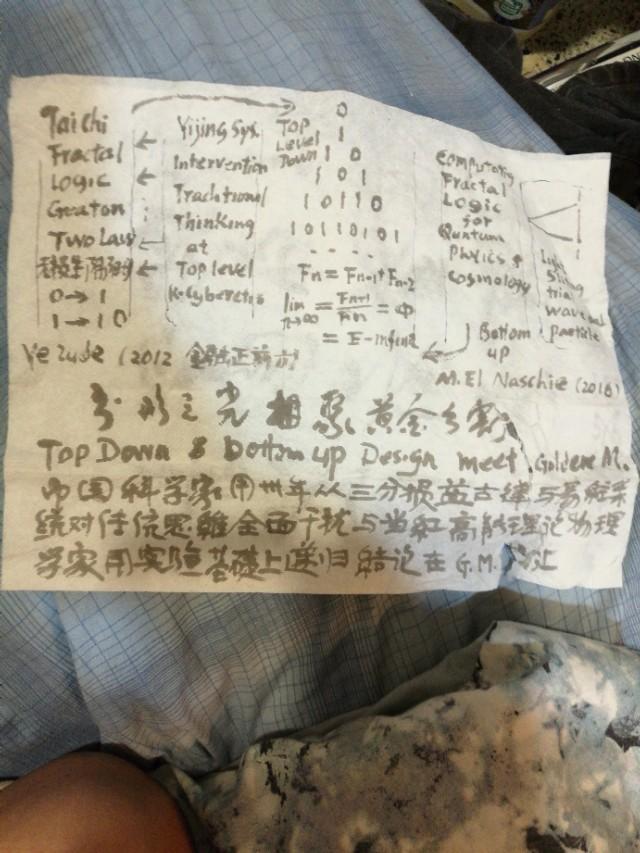 Taichi
Fractal
Logic
Two Law
0→1
1→10
Yijing Sys.
Intervention
Traditional
Thinking
at
Top level
Top
Level
Down
0
1
10
101
10110
10110101
Fn = Fn-1+Fn-2
lim n→∞ = Fn+1/Fn = Φ
= E-infinit
Fractal
Logic
for
Quntum
Physics &
Cosmology
wave
particle
Bottom
up
(2012
M. El Naschie (2016)
光相聚黄金分割
Top Down & bottom up Design meet Goldene M.
中国科学家用卅年从三分损益古律与易经系
统对传统思維全面干扰与当紅高能理论物理
学家用实验基礎上递归结论在 G.M.